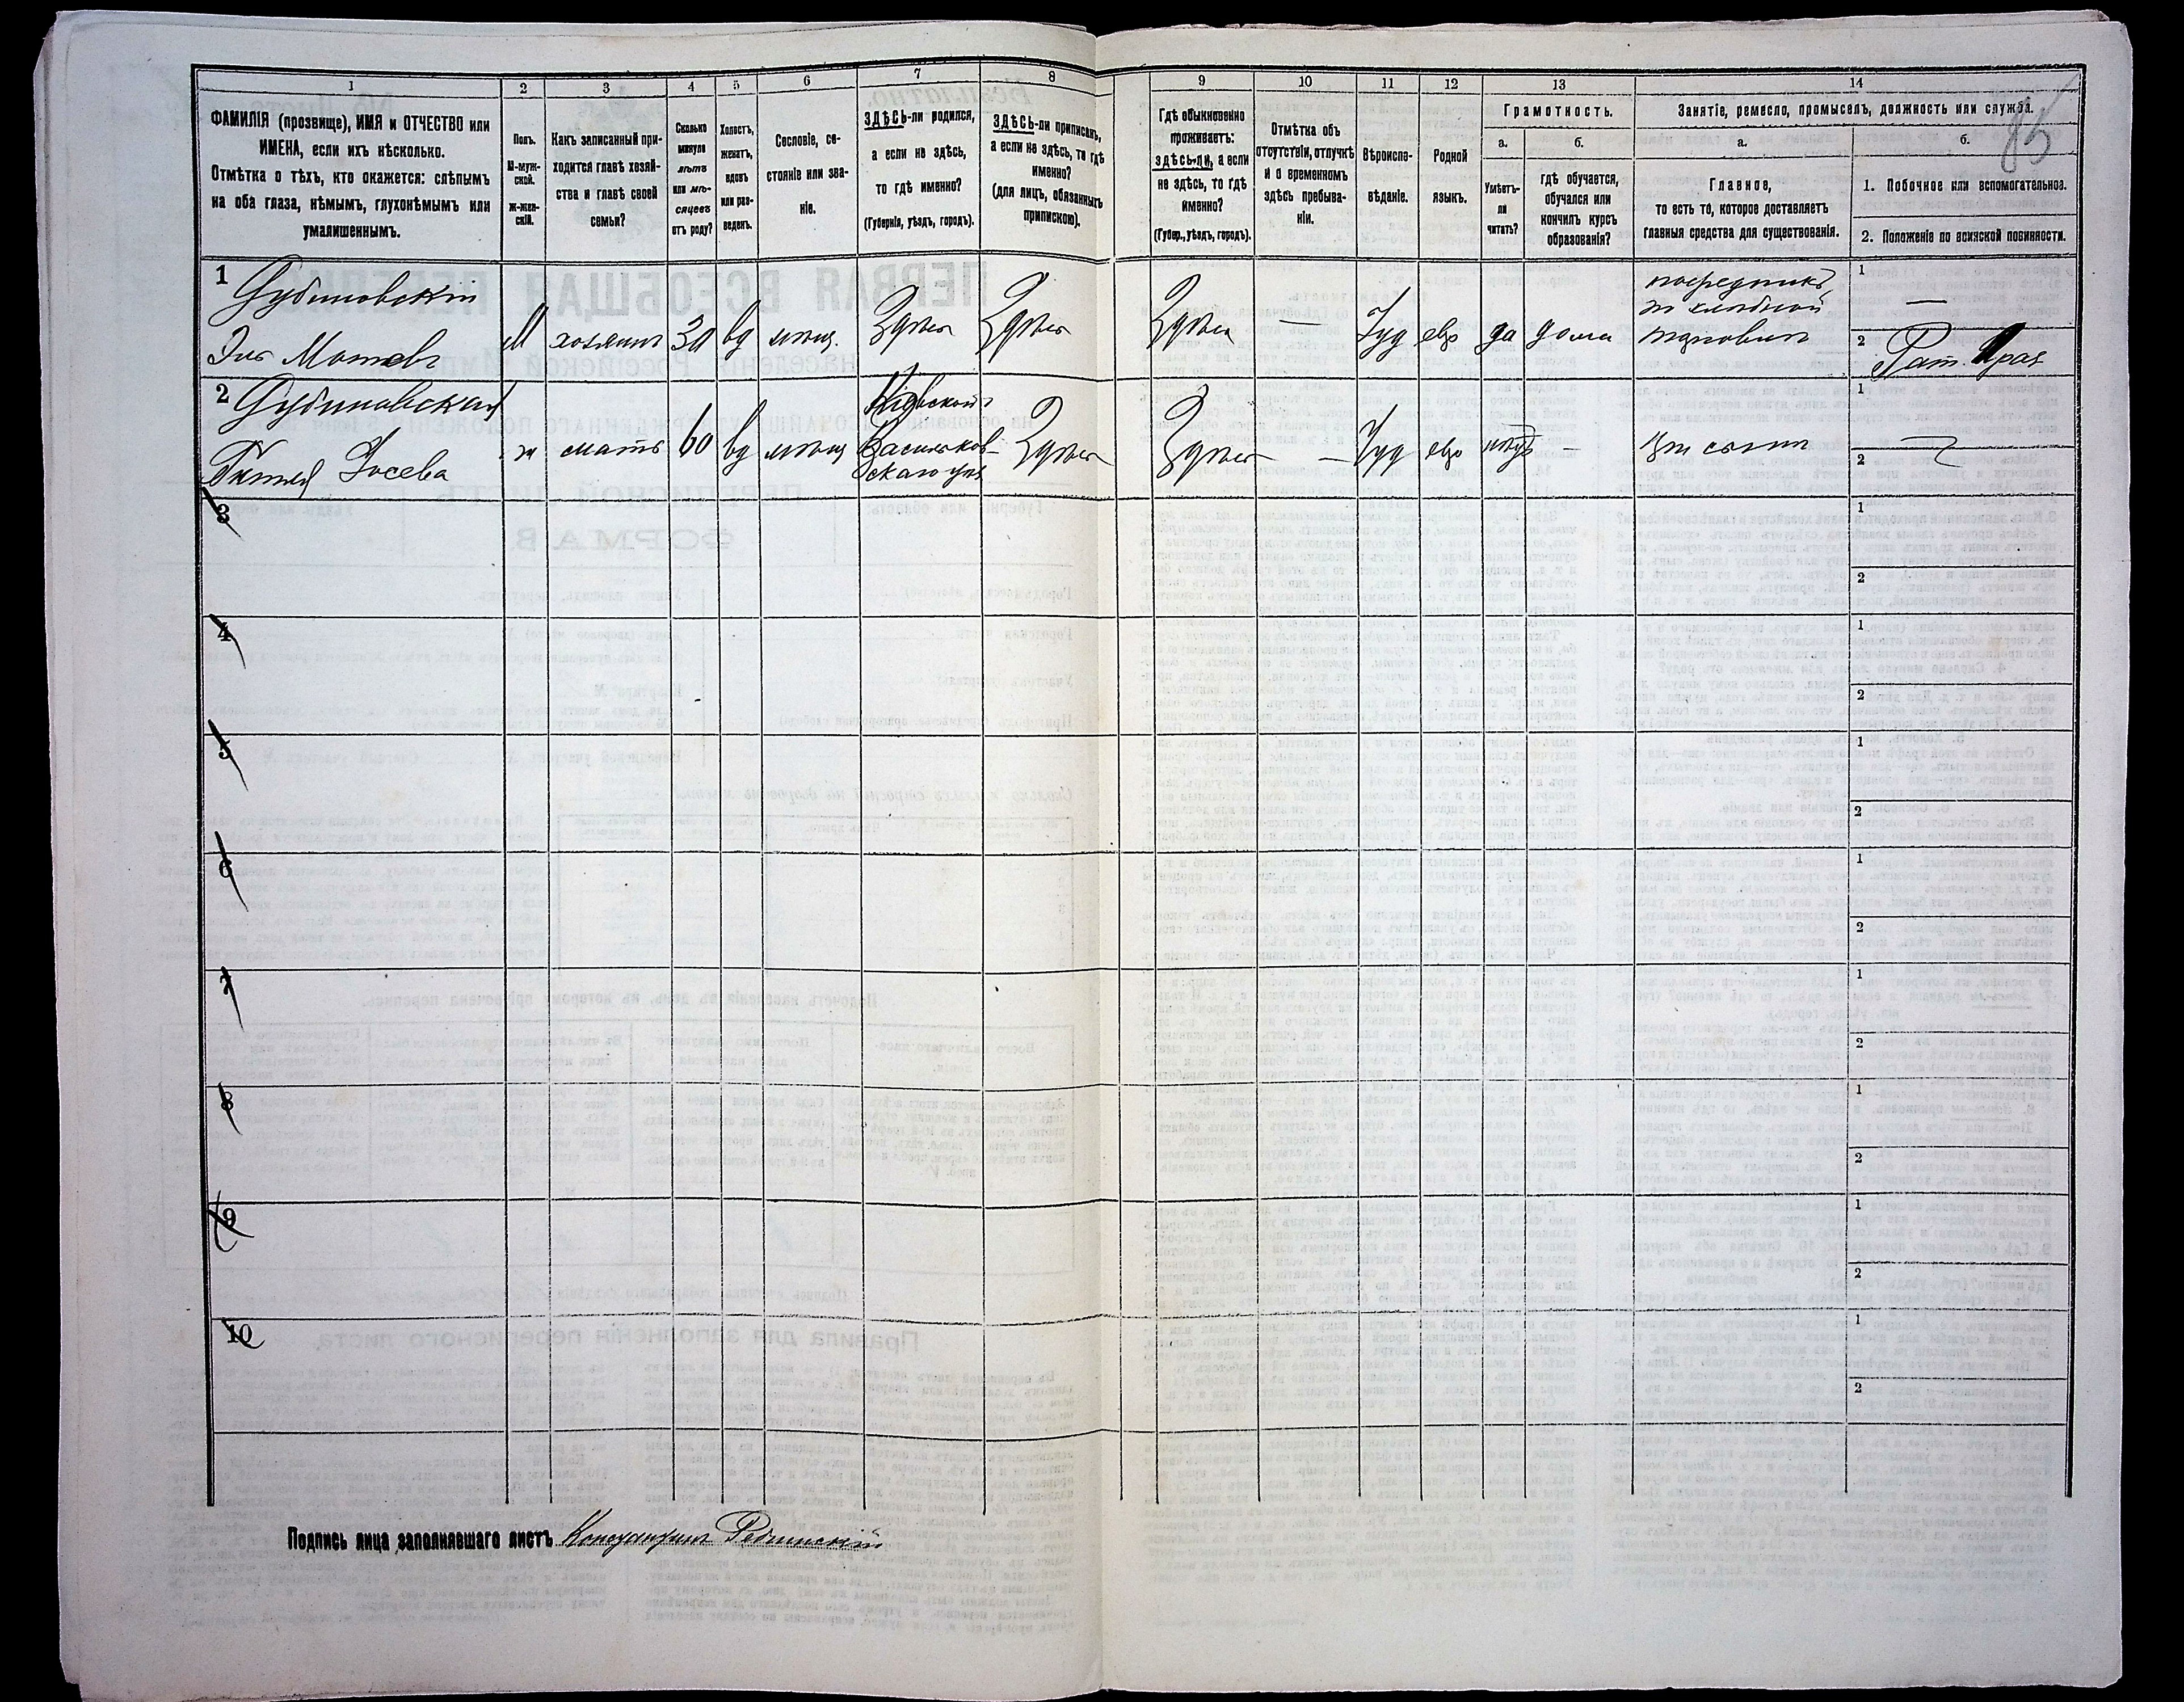 1 2 3 4 5 6 7 8 9 10 11 12 13 14
ФАМИЛІЯ (прозвище), ИМЯ и ОТЧЕСТВО или
ИМЕНА, если ихъ нѣсколько.
Отмѣтка о тѣхъ, кто окажется: слѣпымъ
на оба глаза, нѣмымъ, глухонѣмымъ или
умалишеннымъ.
Полъ.
М-муж-
ской.
ж-жен-
скій.
Какъ записанный при-
ходится главѣ хозяй-
ства и главѣ своей
семьи?
Сколько
минуло
лѣтъ
или мѣ-
сяцевъ
отъ роду?
Холостъ,
женатъ,
вдовъ
или раз-
веденъ.
Сословіе, со-
стояніе или зва-
ніе.
ЗДѢСЬ-ли родился,
а если не здѣсь,
то гдѣ именно?
(Губернія, уѣздъ, городъ).
ЗДѢСЬ-ли приписанъ,
а если не здѣсь, то гдѣ
именно?
(для лицъ, обязанныхъ
припискою).
Гдѣ обыкновенно
проживаетъ:
здѣсь-ли, а если
не здѣсь, то гдѣ
именно?
(Губер., уѣздъ, городъ).
Отмѣтка объ
отсутствіи, отлучкѣ
и о временномъ
здѣсь пребыва-
ніи.
Вѣроиспо-
вѣданіе.
Родной
языкъ.
Грамотность.
а.
Умѣетъ-
ли
читать?
б.
гдѣ обучается,
обучался или
кончилъ курсъ
образованія?
Занятіе, ремесло, промыселъ, должность или служба.
85
а.
Главное,
то есть то, которое доставляетъ
главныя средства для существованія.
б.
1. Побочное или вспомогательное.
2. Положеніе по воинской повинности.
1 Дубиновскій
Эль Мотевъ
М хозяинъ 30 вд мѣщ. Здѣсь Здѣсь Здѣсь — Іуд евр да дома
посредникъ
въ хлѣбной
торговли
1 —
2 Рат.
2 Дубиновская
Гитля Іосева
ж мать 60 вд мѣщ
Кіевской
Васильков-
скаго уѣз
Здѣсь Здѣсь — Іуд евр нѣтъ — при сынѣ
1
2
3
1
2
4
1
2
5
1
2
6
1
2
7
1
2
8
1
2
9
1
2
10
1
2
Подпись лица заполнявшаго листъ